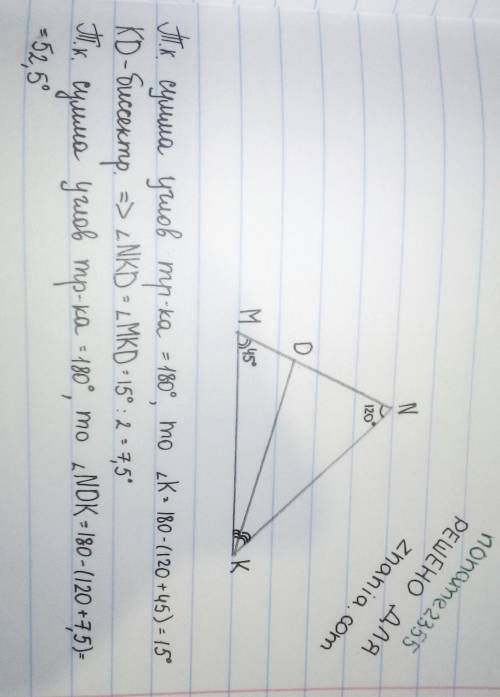 noname2355
РЕШЕНО ДЛЯ
znania.com
N
120°
D
M
45°
K
Т.к. сумма углов тр-ка = 180°, то ∠K = 180-(120+45) = 15°
KD-биссектр. => ∠NKD = ∠MKD = 15° : 2 = 7,5°
Т.к. сумма углов тр-ка = 180°, то ∠NDK = 180-(120+7,5) =
= 52,5°